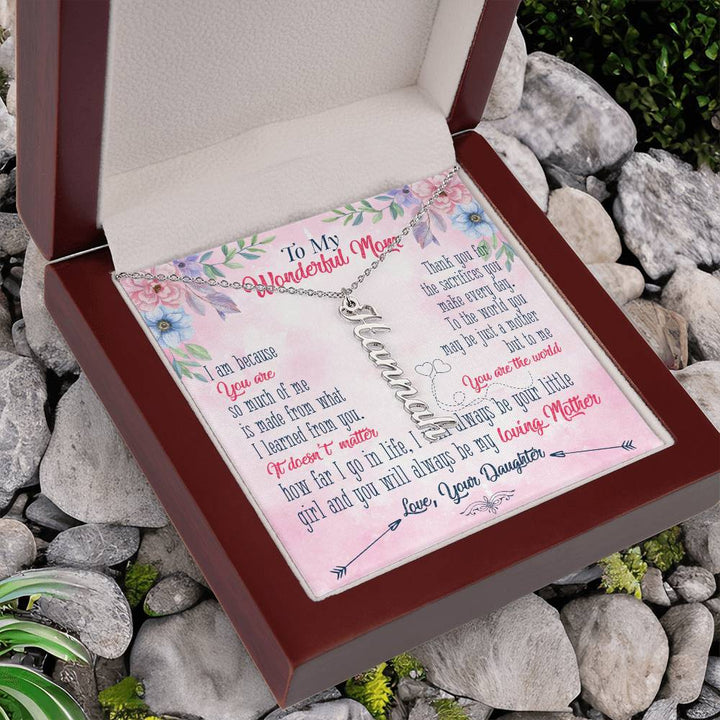 To My
Wonderful Mom
Thank you for
the sacrifices you
make every day.
To the world you
may be just a mother
but to me
You are the world
I am because
You are
so much of me
is made from what
I learned from you.
It doesn't matter
how far I go in life, I always be your little
girl and you will always be my loving Mother
Love, Your Daughter
Hannah